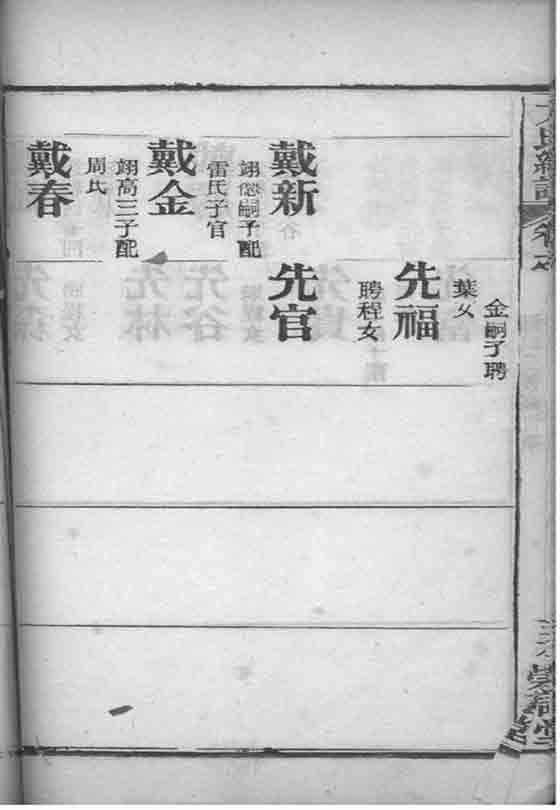 氏統譜
戴新
翊嗣子配
雷氏子官
戴金
翊高三子配
周氏
戴春
金嗣子聘
葉女
先福
聘程女
先官